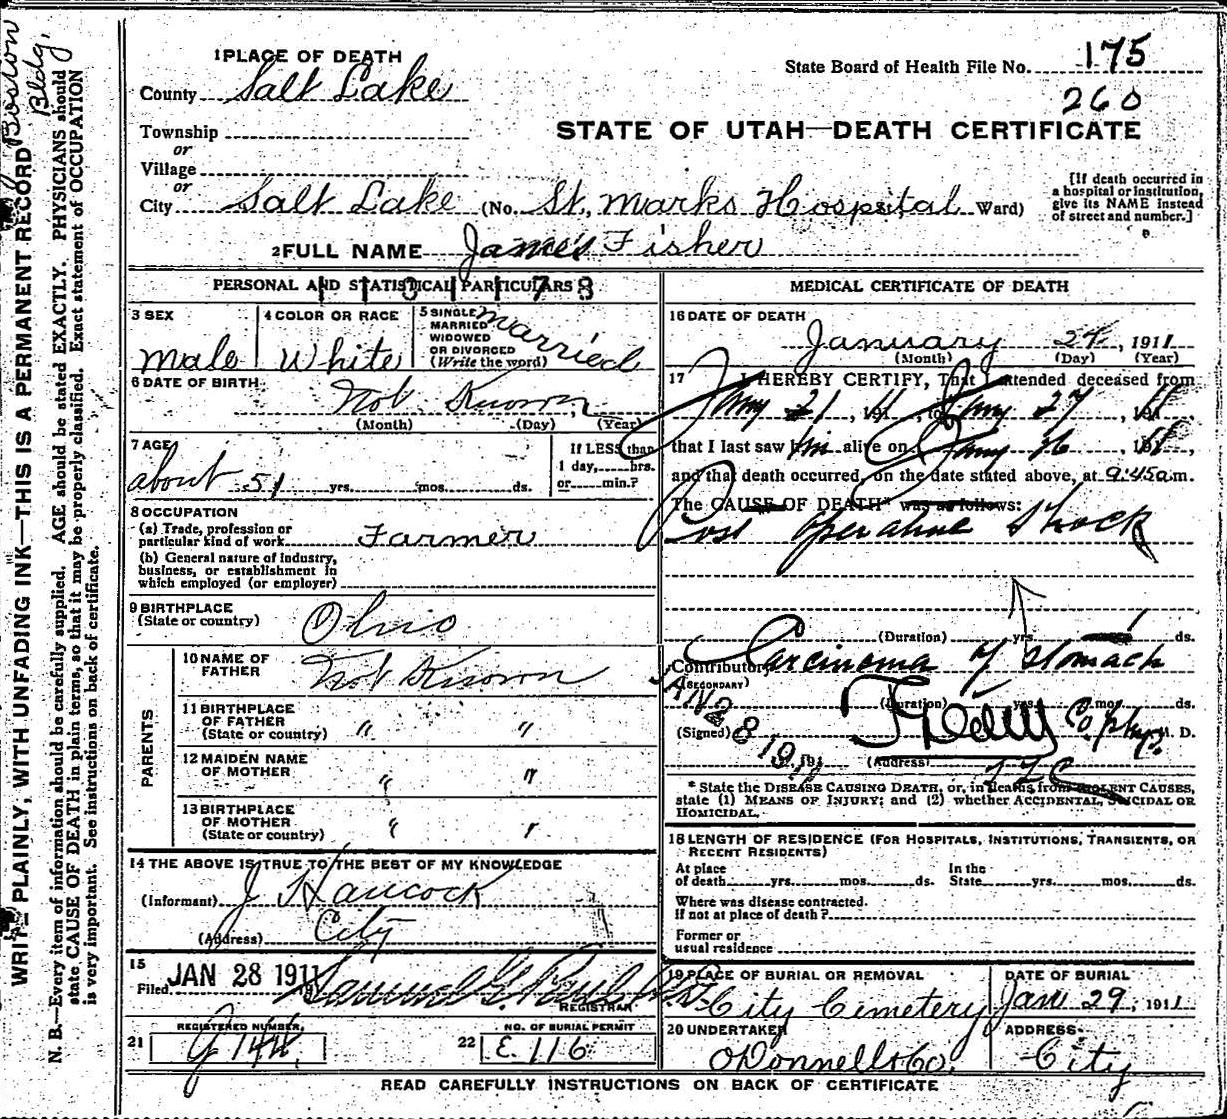 Boston
Bldg.
WRITE PLAINLY, WITH UNFADING INK—THIS IS A PERMANENT RECORD
N. B.—Every item of information should be carefully supplied. AGE should be stated EXACTLY. PHYSICIANS should
state CAUSE OF DEATH in plain terms, so that it may be properly classified. Exact statement of OCCUPATION
is very important. See instructions on back of certificate.
1 PLACE OF DEATH
State Board of Health File No. 175
260
County Salt Lake
STATE OF UTAH—DEATH CERTIFICATE
Township
or
Village
or
City Salt Lake (No. St. Marks Hospital Ward)
[If death occurred in
a hospital or institution,
give its NAME instead
of street and number.]
2 FULL NAME James Fisher
PERSONAL AND STATISTICAL PARTICULARS
3 SEX
Male
4 COLOR OR RACE
White
5 SINGLE
MARRIED
WIDOWED
OR DIVORCED
(Write the word)
Married
6 DATE OF BIRTH
Not Known
(Month) (Day) (Year)
7 AGE
about 51 yrs. mos. ds.
If LESS than
1 day, hrs.
or min.?
8 OCCUPATION
(a) Trade, profession or
particular kind of work Farmer
(b) General nature of industry,
business, or establishment in
which employed (or employer)
9 BIRTHPLACE
(State or country) Ohio
PARENTS
10 NAME OF
FATHER Not Known
11 BIRTHPLACE
OF FATHER
(State or country) " "
12 MAIDEN NAME
OF MOTHER " "
13 BIRTHPLACE
OF MOTHER
(State or country) " "
14 THE ABOVE IS TRUE TO THE BEST OF MY KNOWLEDGE
(Informant) J Hancock
(Address) City
15
Filed JAN 28 1911
REGISTRAR
REGISTERED NUMBER
21
NO. OF BURIAL PERMIT
22 E 116
MEDICAL CERTIFICATE OF DEATH
16 DATE OF DEATH
January 1911
(Month) (Day) (Year)
17 I HEREBY CERTIFY, That I attended deceased from
Jany 21, 1911, to Jany 27, 1911,
that I last saw him alive on Jany 26, 1911,
and that death occurred, on the date stated above, at 9:45 a m.
The CAUSE OF DEATH* was as follows:
Post Operative Shock
(Duration) yrs. 1 ds.
Contributory Carcinoma of Stomach
(SECONDARY)
(Duration) yrs. mos. ds.
JAN 28 1911
(Signed) Co. Phys. M. D.
, 191 (Address) SLC
* State the DISEASE CAUSING DEATH, or, in deaths from VIOLENT CAUSES,
state (1) MEANS OF INJURY; and (2) whether ACCIDENTAL, SUICIDAL OR
HOMICIDAL.
18 LENGTH OF RESIDENCE (FOR HOSPITALS, INSTITUTIONS, TRANSIENTS, OR
RECENT RESIDENTS)
At place
of death yrs. mos. ds.
In the
State yrs. mos. ds.
Where was disease contracted.
If not at place of death?
Former or
usual residence
19 PLACE OF BURIAL OR REMOVAL
City Cemetery
DATE OF BURIAL
Jan 29, 1911
20 UNDERTAKER
O'Donnell & Co.
ADDRESS
City
READ CAREFULLY INSTRUCTIONS ON BACK OF CERTIFICATE